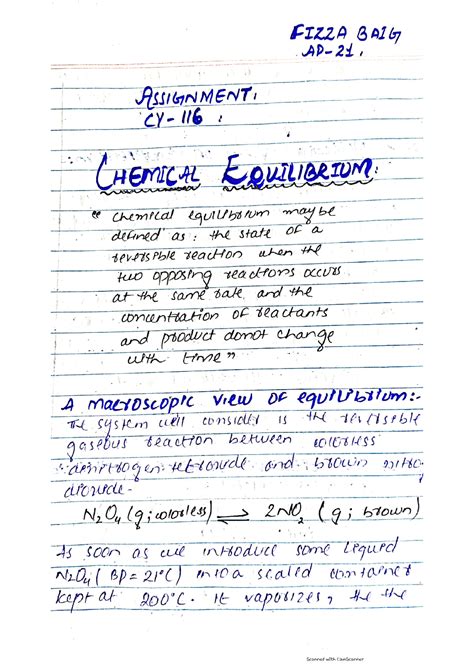 FIZZA BAIG
AP-21.
ASSIGNMENT.
CY-116
CHEMICAL EQUILIBRIUM:
" chemical equilibrium maybe
defined as : the state of a
reversible reaction when the
two opposing reactions occurs
at the same rate and the
concentration of reactants
and product donot change
with time "
A macroscopic view of equilibrium:-
The system we'll consider is the reversible
gaseous reaction between colorless
dinitrogen tetroxide and brown nitro.
dioxide.
N₂O₄(g; colorless) ⇌ 2NO₂ (g; brown)
As soon as we introduce some liquid
N₂O₄ (BP = 21°C) into a sealed container
kept at 200°C. it vaporizes, the the
Scanned with CamScanner